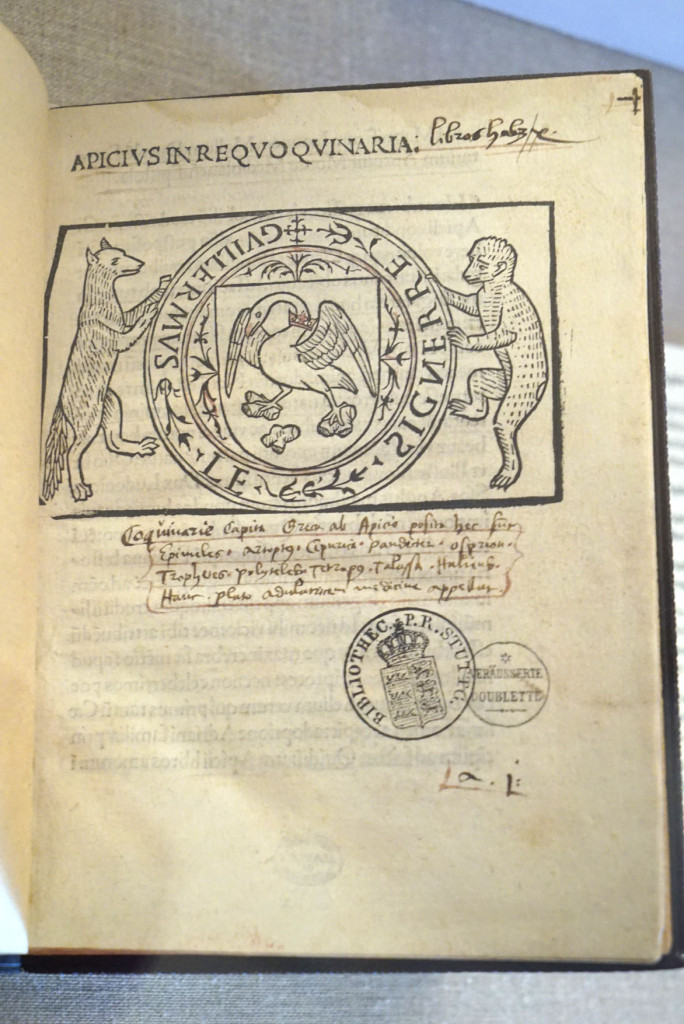 APICIVS IN RE QVOQVINARIA:
GVILLERMVS
LE
SIGNERRE
Coquinarie Capita Greca ab Apicio posita hec sunt
Epimeles. artoptus. Cepuria. pandecter. osprion.
Trophetes. polyteles. Tetrapus. Talassa. Halieus.
Hanc plato adulatricem medicine appellat.
BIBLIOTHEC. P. R. STUTTG.
VERÄUSSERTE
DOUBLETTE